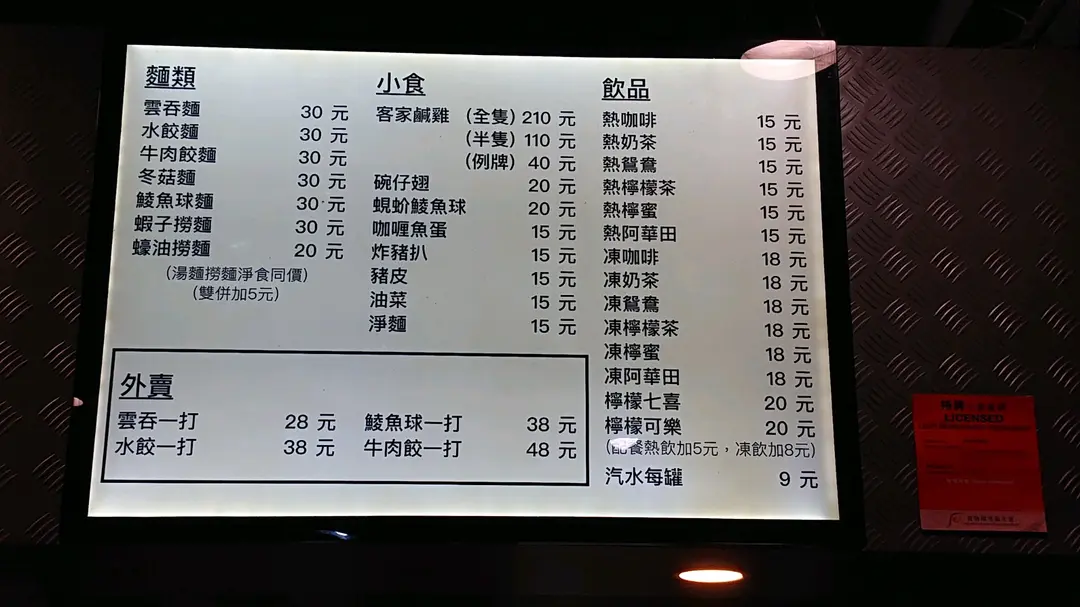 麵類
雲吞麵 30 元
水餃麵 30 元
牛肉餃麵 30 元
冬菇麵 30 元
鯪魚球麵 30 元
蝦子撈麵 30 元
蠔油撈麵 20 元
(湯麵撈麵淨食同價)
(雙併加5元)
小食
客家鹹雞 (全隻) 210 元
(半隻) 110 元
(例牌) 40 元
碗仔翅 20 元
蜆蚧鯪魚球 20 元
咖喱魚蛋 15 元
炸豬扒 15 元
豬皮 15 元
油菜 15 元
淨麵 15 元
飲品
熱咖啡 15 元
熱奶茶 15 元
熱鴛鴦 15 元
熱檸檬茶 15 元
熱檸蜜 15 元
熱阿華田 15 元
凍咖啡 18 元
凍奶茶 18 元
凍鴛鴦 18 元
凍檸檬茶 18 元
凍檸蜜 18 元
凍阿華田 18 元
檸檬七喜 20 元
檸檬可樂 20 元
(配餐熱飲加5元，凍飲加8元)
汽水每罐 9 元
外賣
雲吞一打 28 元 鯪魚球一打 38 元
水餃一打 38 元 牛肉餃一打 48 元
LICENSED